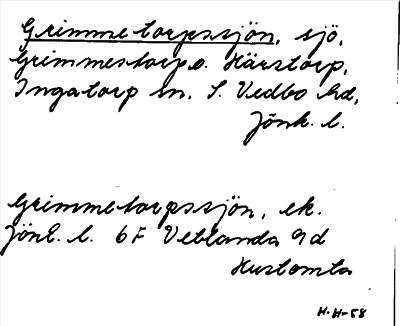 Grimmetorpssjön, sjö,
Grimmestorp o. Härstorp,
Ingatorp sn. S. Vedbo hd,
Jönk. l.
Grimmetorpssjön, ek.
Jönk. l. 6F Vetlanda 9d
Hustomta
H.H-58